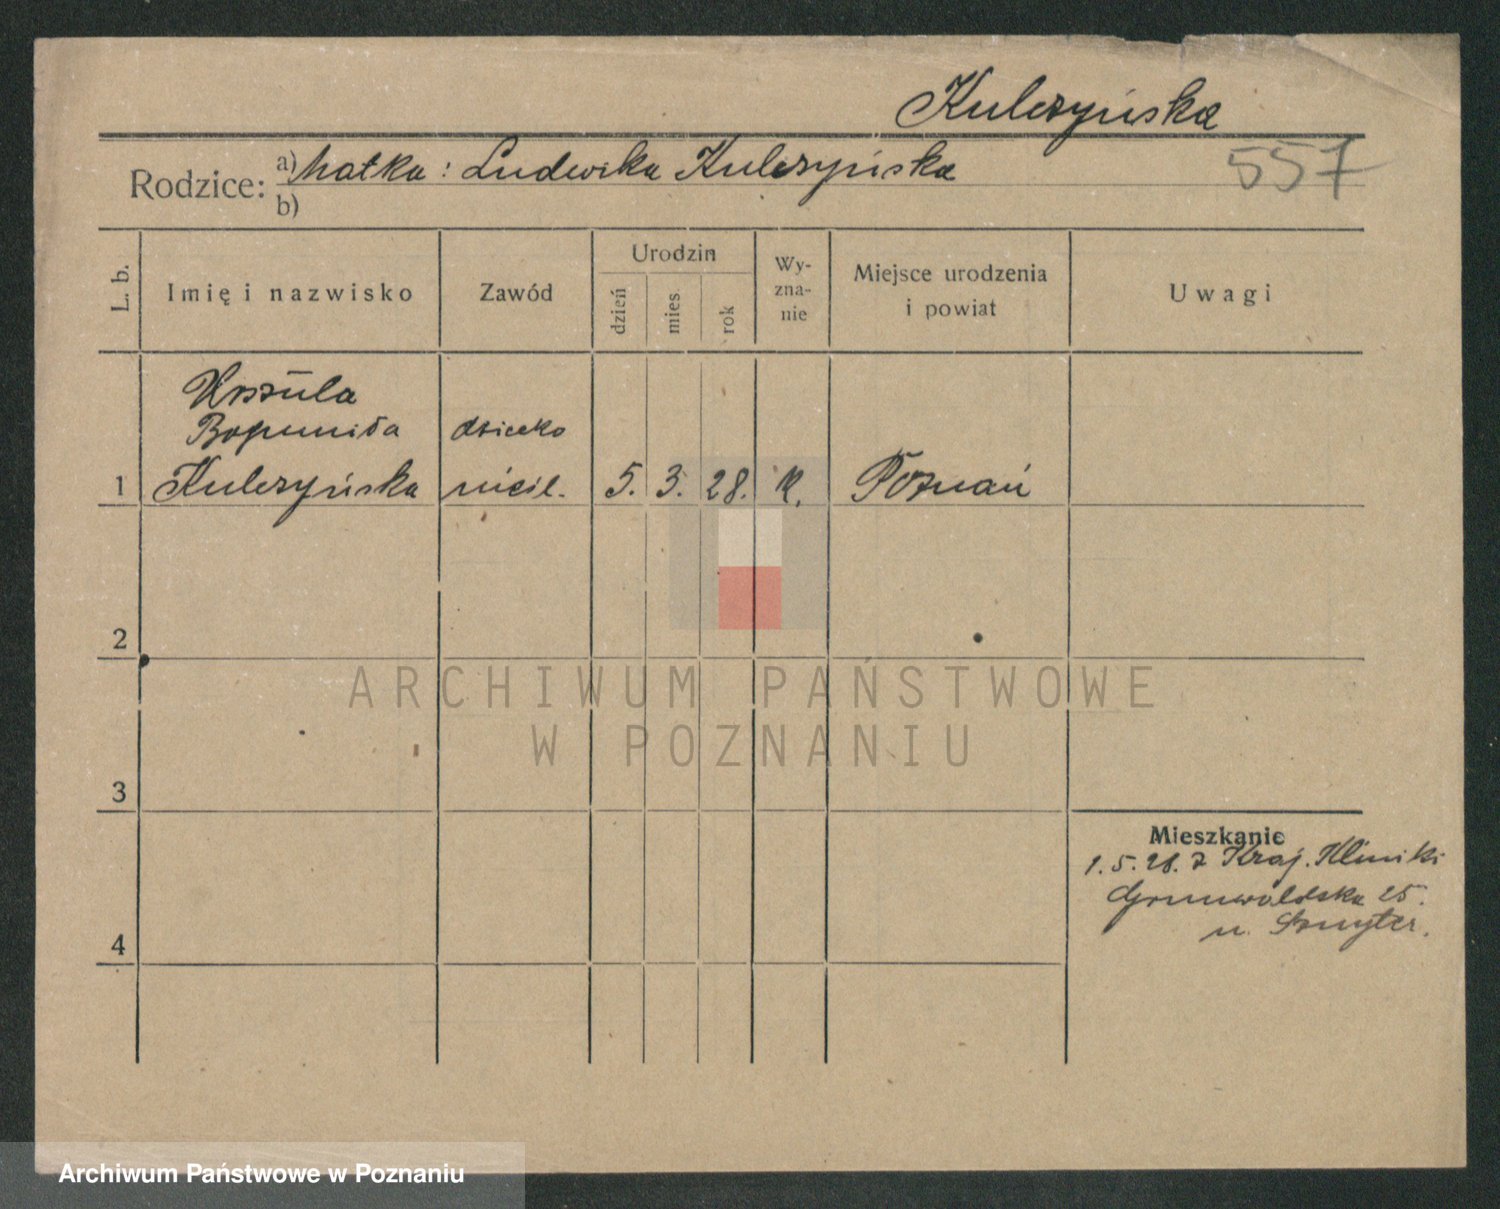 Kulczyńska
Rodzice: a) Matka: Ludwika Kulczyńska
557
b)
L. b.
Imię i nazwisko
Zawód
Urodzin
dzień
mies.
rok
Wy-
zna-
nie
Miejsce urodzenia
i powiat
Uwagi
Urszula
Bogumiła dziecko
1 Kulczyńska nieśl. 5. 3. 28. K. Poznań
2
ARCHIWUM PAŃSTWOWE
W POZNANIU
3
Mieszkanie
1.5.28. z Kraj. Kliniki
Grunwaldska 25.
4
Archiwum Państwowe w Poznaniu